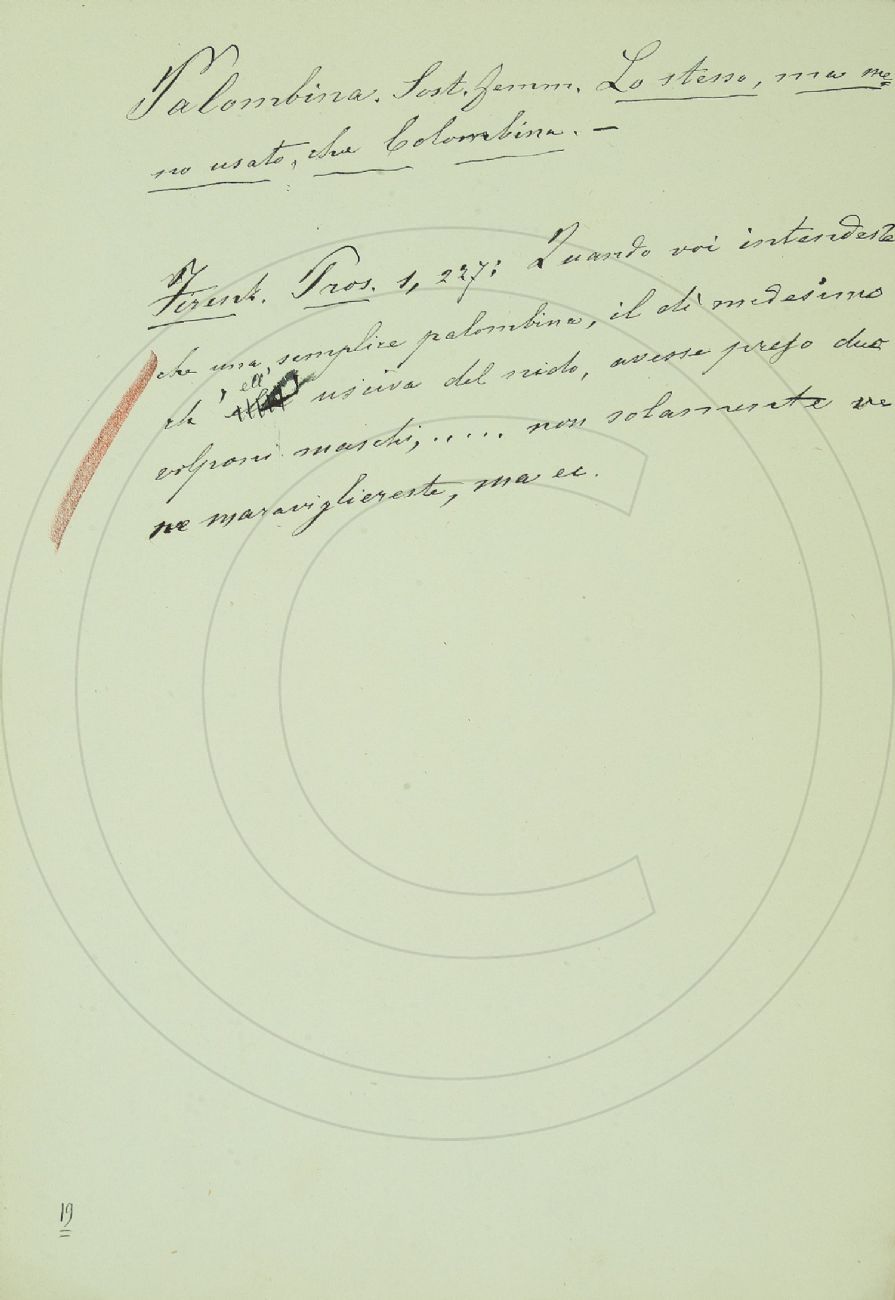 Palombina. Sost. femm. Lo stesso, ma me=
no usato, che Colombina. –
Firenz. Pros. 1, 227: Quando voi intendeste
che una semplice palombina, il dì medesimo
ch' ell' usciva del nido, avesse preso due
volponi maschi,..... non solamente ve
ne maravigliereste, ma ec.
19